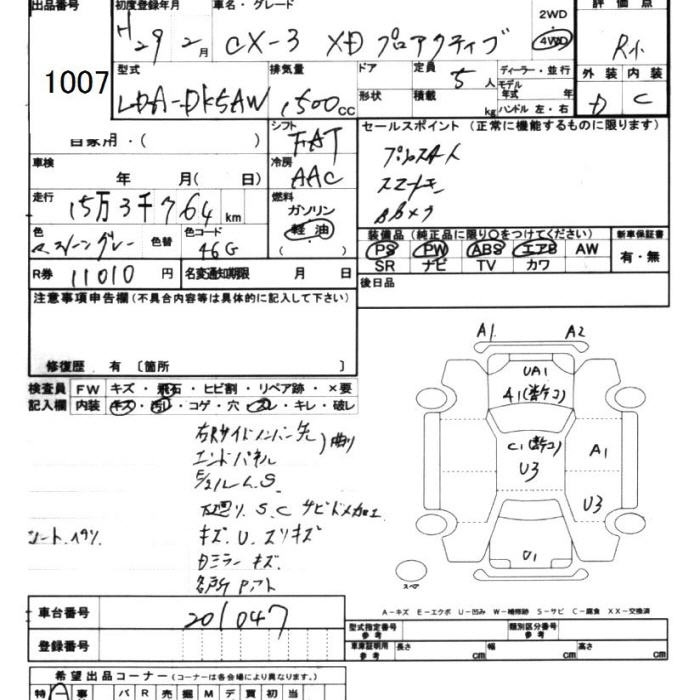 出品番号 初度登録年月 車名・グレード 評価点
1007 H29 2月 CX-3 XD プロアクティブ 2WD 4WD R
型式 排気量 ドア 定員 ディーラー・並行 外装 内装
LDA-DK5AW 1500cc 5人 モデル年式 年 D C
形状 積載 kg ハンドル 左・右
自家用・( ) シフト FAT セールスポイント (正常に機能するものに限ります)
車検 年 月( 日) 冷房 AAC
走行 15万3千764km 燃料 ガソリン 軽油 ( )
装備品(純正品に限り○をつけてください) 新車保証書
色 マシーングレー 色替 色コード 46G
PS PW ABS エアB AW 有・無
SR ナビ TV カワ
R券 11010円 名変通知期限 月 日
後日品
注意事項申告欄(不具合内容等は具体的に記入して下さい)
修復歴 有 〔箇所 〕
検査員 FW キズ・飛石・ヒビ割・リペア跡・×要
記入欄 内装 キズ・汚れ・コゲ・穴・スレ・キレ・破レ
A1 A2
UA1
A1
C1
U3
A1
U3
U1
エンドパネル 曲り
下廻り S.C サビドメ加工
キズ.U.スリキズ
ミラーキズ
スペア
A-キズ E-エクボ U-凹み W-補修跡 S-サビ C-腐食 XX-交換済
車台番号 201047
登録番号
型式指定番号 参考 類別区分番号 参考
車庫証明用 参考 長さ cm 幅 cm 高さ cm
希望出品コーナー (コーナーは各会場により異なります。)
特 A 事 バ R 売 掘 M デ 買 初 当